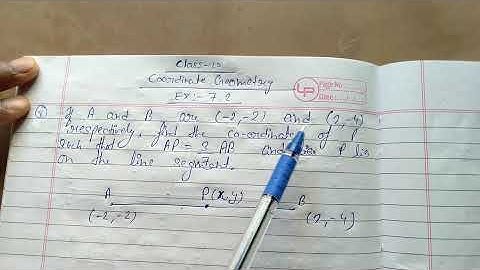 Class-10
Coordinate Geometry
Ex:- 7.2
LP
Page No.
Date:
If A and B are (-2,-2) and (2,-4)
respectively, find the co-ordinates of P
such that AP = AB and P lies
on the line segment.
A P(x,y) B
(-2,-2) (2,-4)